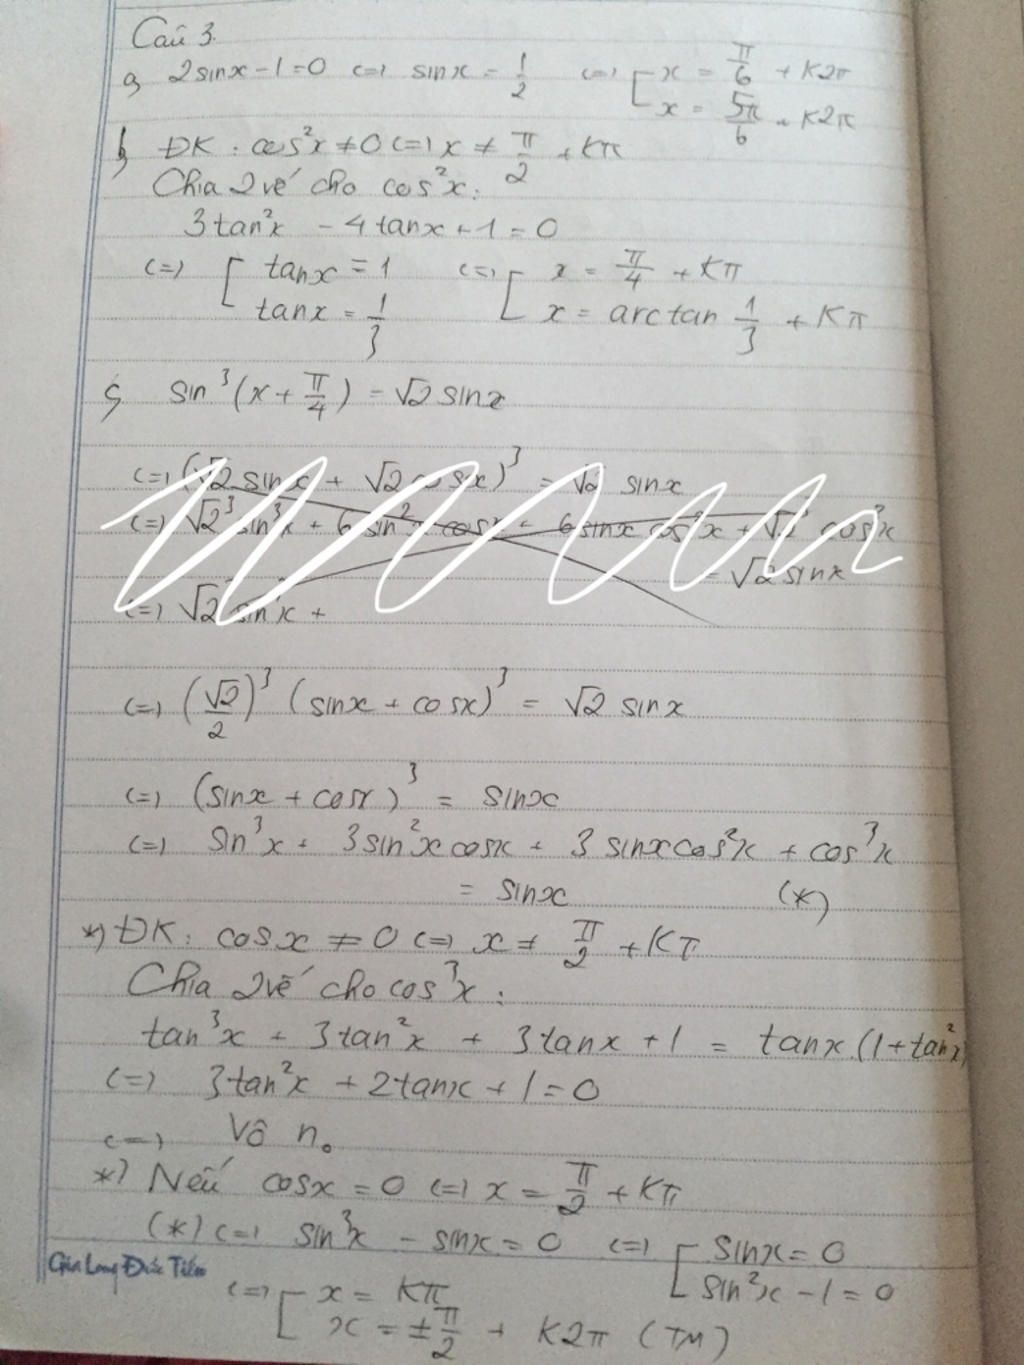 Câu 3.
a, 2sinx - 1 = 0 <=> sinx = 1/2 <=> [ x = π/6 + K2π
x = 5π/6 + K2π
b, ĐK: cos²x ≠ 0 <=> x ≠ π/2 + Kπ
Chia 2 vế cho cos²x:
3tan²x - 4tanx + 1 = 0
<=> [ tanx = 1 <=> [ x = π/4 + Kπ
tanx = 1/3 x = arctan 1/3 + Kπ
c, sin³(x + π/4) = √2 sinx
<=> (√2 sinx + √2 cosx)³ = √2 sinx
<=> √2³ sin³x + 6 sin²x cosx + 6 sinx cos²x + √2³ cos³x
= √2 sinx
<=> √2 sin³x +
<=> (√2/2)³ (sinx + cosx)³ = √2 sinx
<=> (sinx + cosx)³ = sinx
<=> sin³x + 3sin²x cosx + 3 sinx cos²x + cos³x
= sinx (*)
*) ĐK: cosx ≠ 0 <=> x ≠ π/2 + Kπ
Chia 2 vế cho cos³x:
tan³x + 3tan²x + 3tanx + 1 = tanx.(1 + tan²x)
<=> 3tan²x + 2tanx + 1 = 0
<=> Vô n₀
*) Nếu cosx = 0 <=> x = π/2 + Kπ
(*) <=> sin³x - sinx = 0 <=> [ sinx = 0
sin²x - 1 = 0
Gia Long Đức Tiến
<=> [ x = Kπ
x = ± π/2 + K2π (TM)